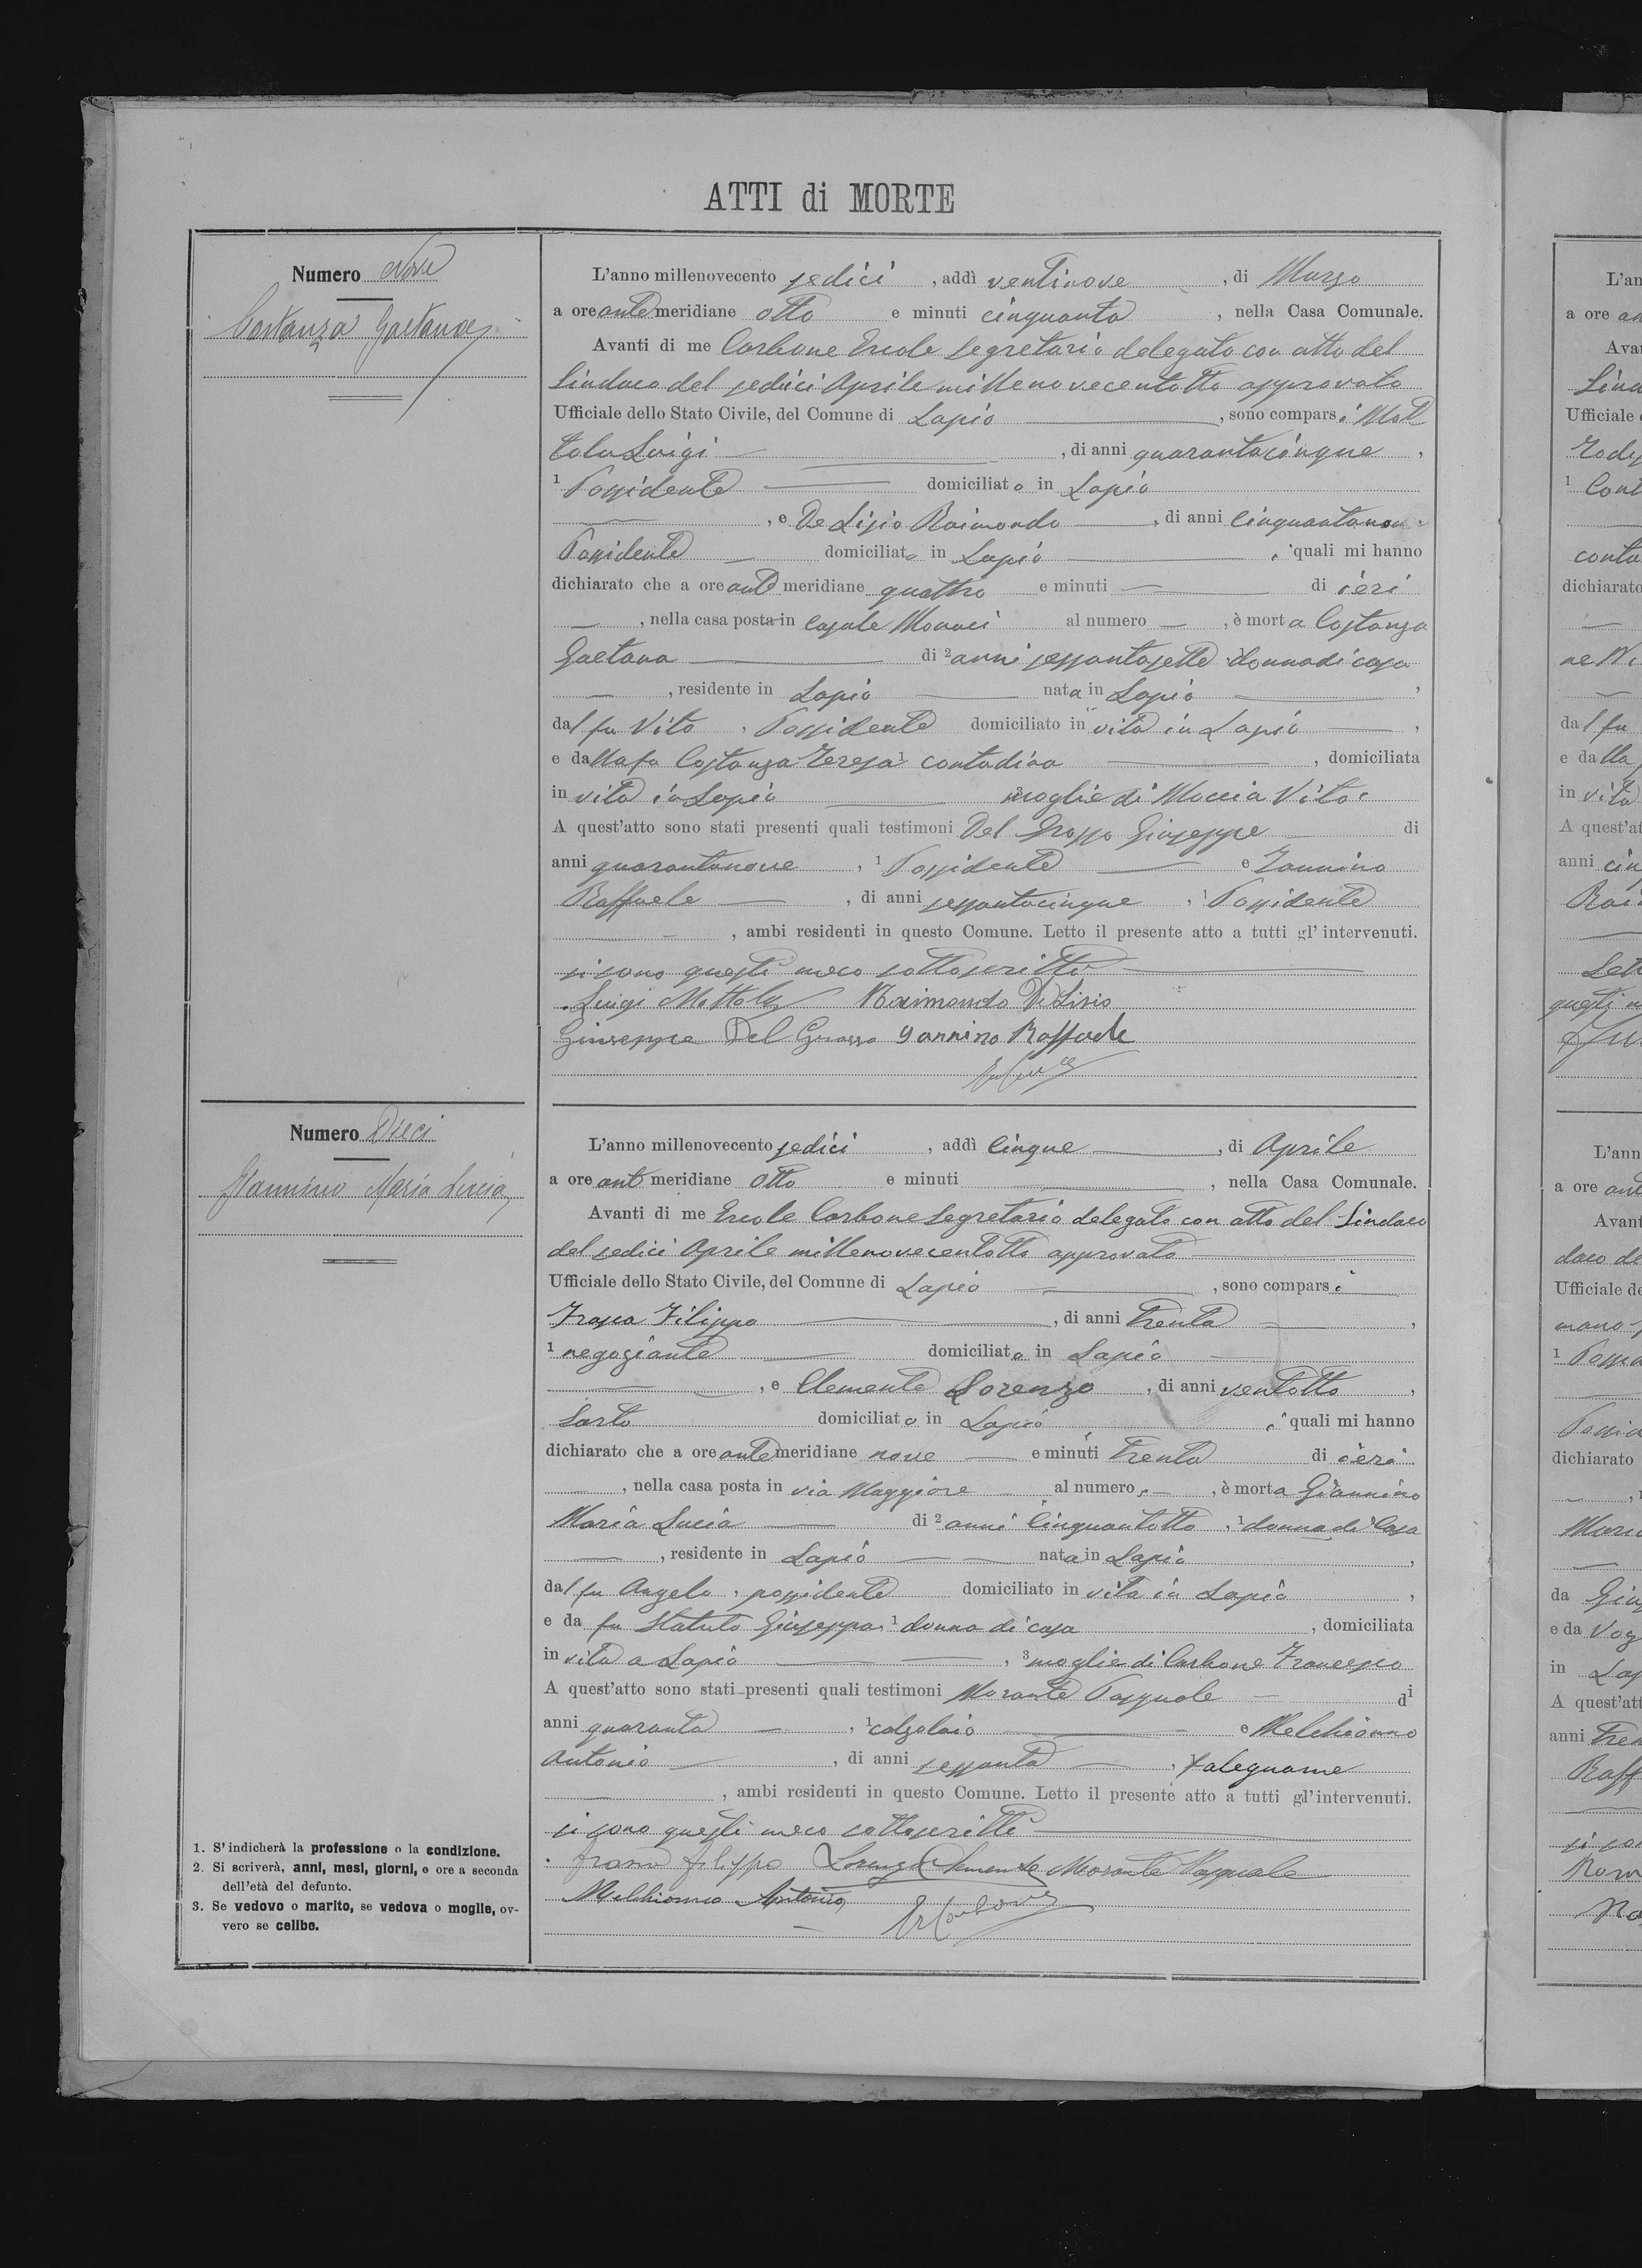 ATTI di MORTE
Numero Nove
Costanza Gaetana
L'anno millenovecento sedici, addì ventinove, di Marzo
a ore antemeridiane otto e minuti cinquanta, nella Casa Comunale.
Avanti di me Carbone Ercole Segretario delegato con atto del
Sindaco del sedici Aprile millenovecentotto approvato
Ufficiale dello Stato Civile, del Comune di Lapio, sono comparsi Mot
tola Luigi, di anni quarantacinque,
1 Possidente domiciliato in Lapio
, e De Lisio Raimondo, di anni cinquantanove
Possidente domiciliato in Lapio, i quali mi hanno
dichiarato che a ore antemeridiane quattro e minuti — di ieri
—, nella casa posta in Casale Monaci al numero —, è morta Costanza
Gaetana di 2 anni sessantasette donna di casa
—, residente in Lapio nata in Lapio,
dal fu Vito, Possidente domiciliato in vita in Lapio,
e dalla fu Costanza Teresa 1 contadina, domiciliata
in vita in Lapio moglie di Moccia Vito.
A quest'atto sono stati presenti quali testimoni Del Grosso Giuseppe di
anni quarantanove, 1 Possidente e Iannino
Raffaele, di anni sessantacinque, 1 Possidente
, ambi residenti in questo Comune. Letto il presente atto a tutti gl'intervenuti.
si sono questi meco sottoscritti
Luigi Mottola Raimondo De Lisio
Giuseppe Del Grosso Gannino Raffaele
Numero Dieci
Giannino Maria Lucia
L'anno millenovecento sedici, addì cinque, di Aprile
a ore ant meridiane otto e minuti —, nella Casa Comunale.
Avanti di me Ercole Carbone Segretario delegato con atto del Sindaco
del sedici Aprile millenovecentotto approvato
Ufficiale dello Stato Civile, del Comune di Lapio, sono comparsi
Frasca Filippo, di anni trenta,
1 negoziante domiciliato in Lapio
, e Clemente Lorenzo, di anni ventotto,
Sarto domiciliato in Lapio, i quali mi hanno
dichiarato che a ore antemeridiane nove e minuti trenta di ieri
, nella casa posta in via Maggiore al numero —, è morta Giannino
Maria Lucia di 2 anni cinquantotto, 1 donna di casa
—, residente in Lapio nata in Lapio,
dal fu Angelo, possidente domiciliato in vita in Lapio,
e da fu Statuto Giuseppa 1 donna di casa, domiciliata
in vita a Lapio, 3 moglie di Carbone Francesco
A quest'atto sono stati presenti quali testimoni Morante Pasquale di
anni quaranta, 1 calzolaio e Melchionno
Antonio, di anni sessanta, falegname
, ambi residenti in questo Comune. Letto il presente atto a tutti gl'intervenuti.
si sono questi meco sottoscritti
Frasca Filippo Lorenzo Clemente Morante Pasquale
Melchionno Antonio
Er Carbone
1. S'indicherà la professione o la condizione.
2. Si scriverà, anni, mesi, giorni, e ore a seconda
dell'età del defunto.
3. Se vedovo o marito, se vedova o moglie, ov-
vero se celibe.